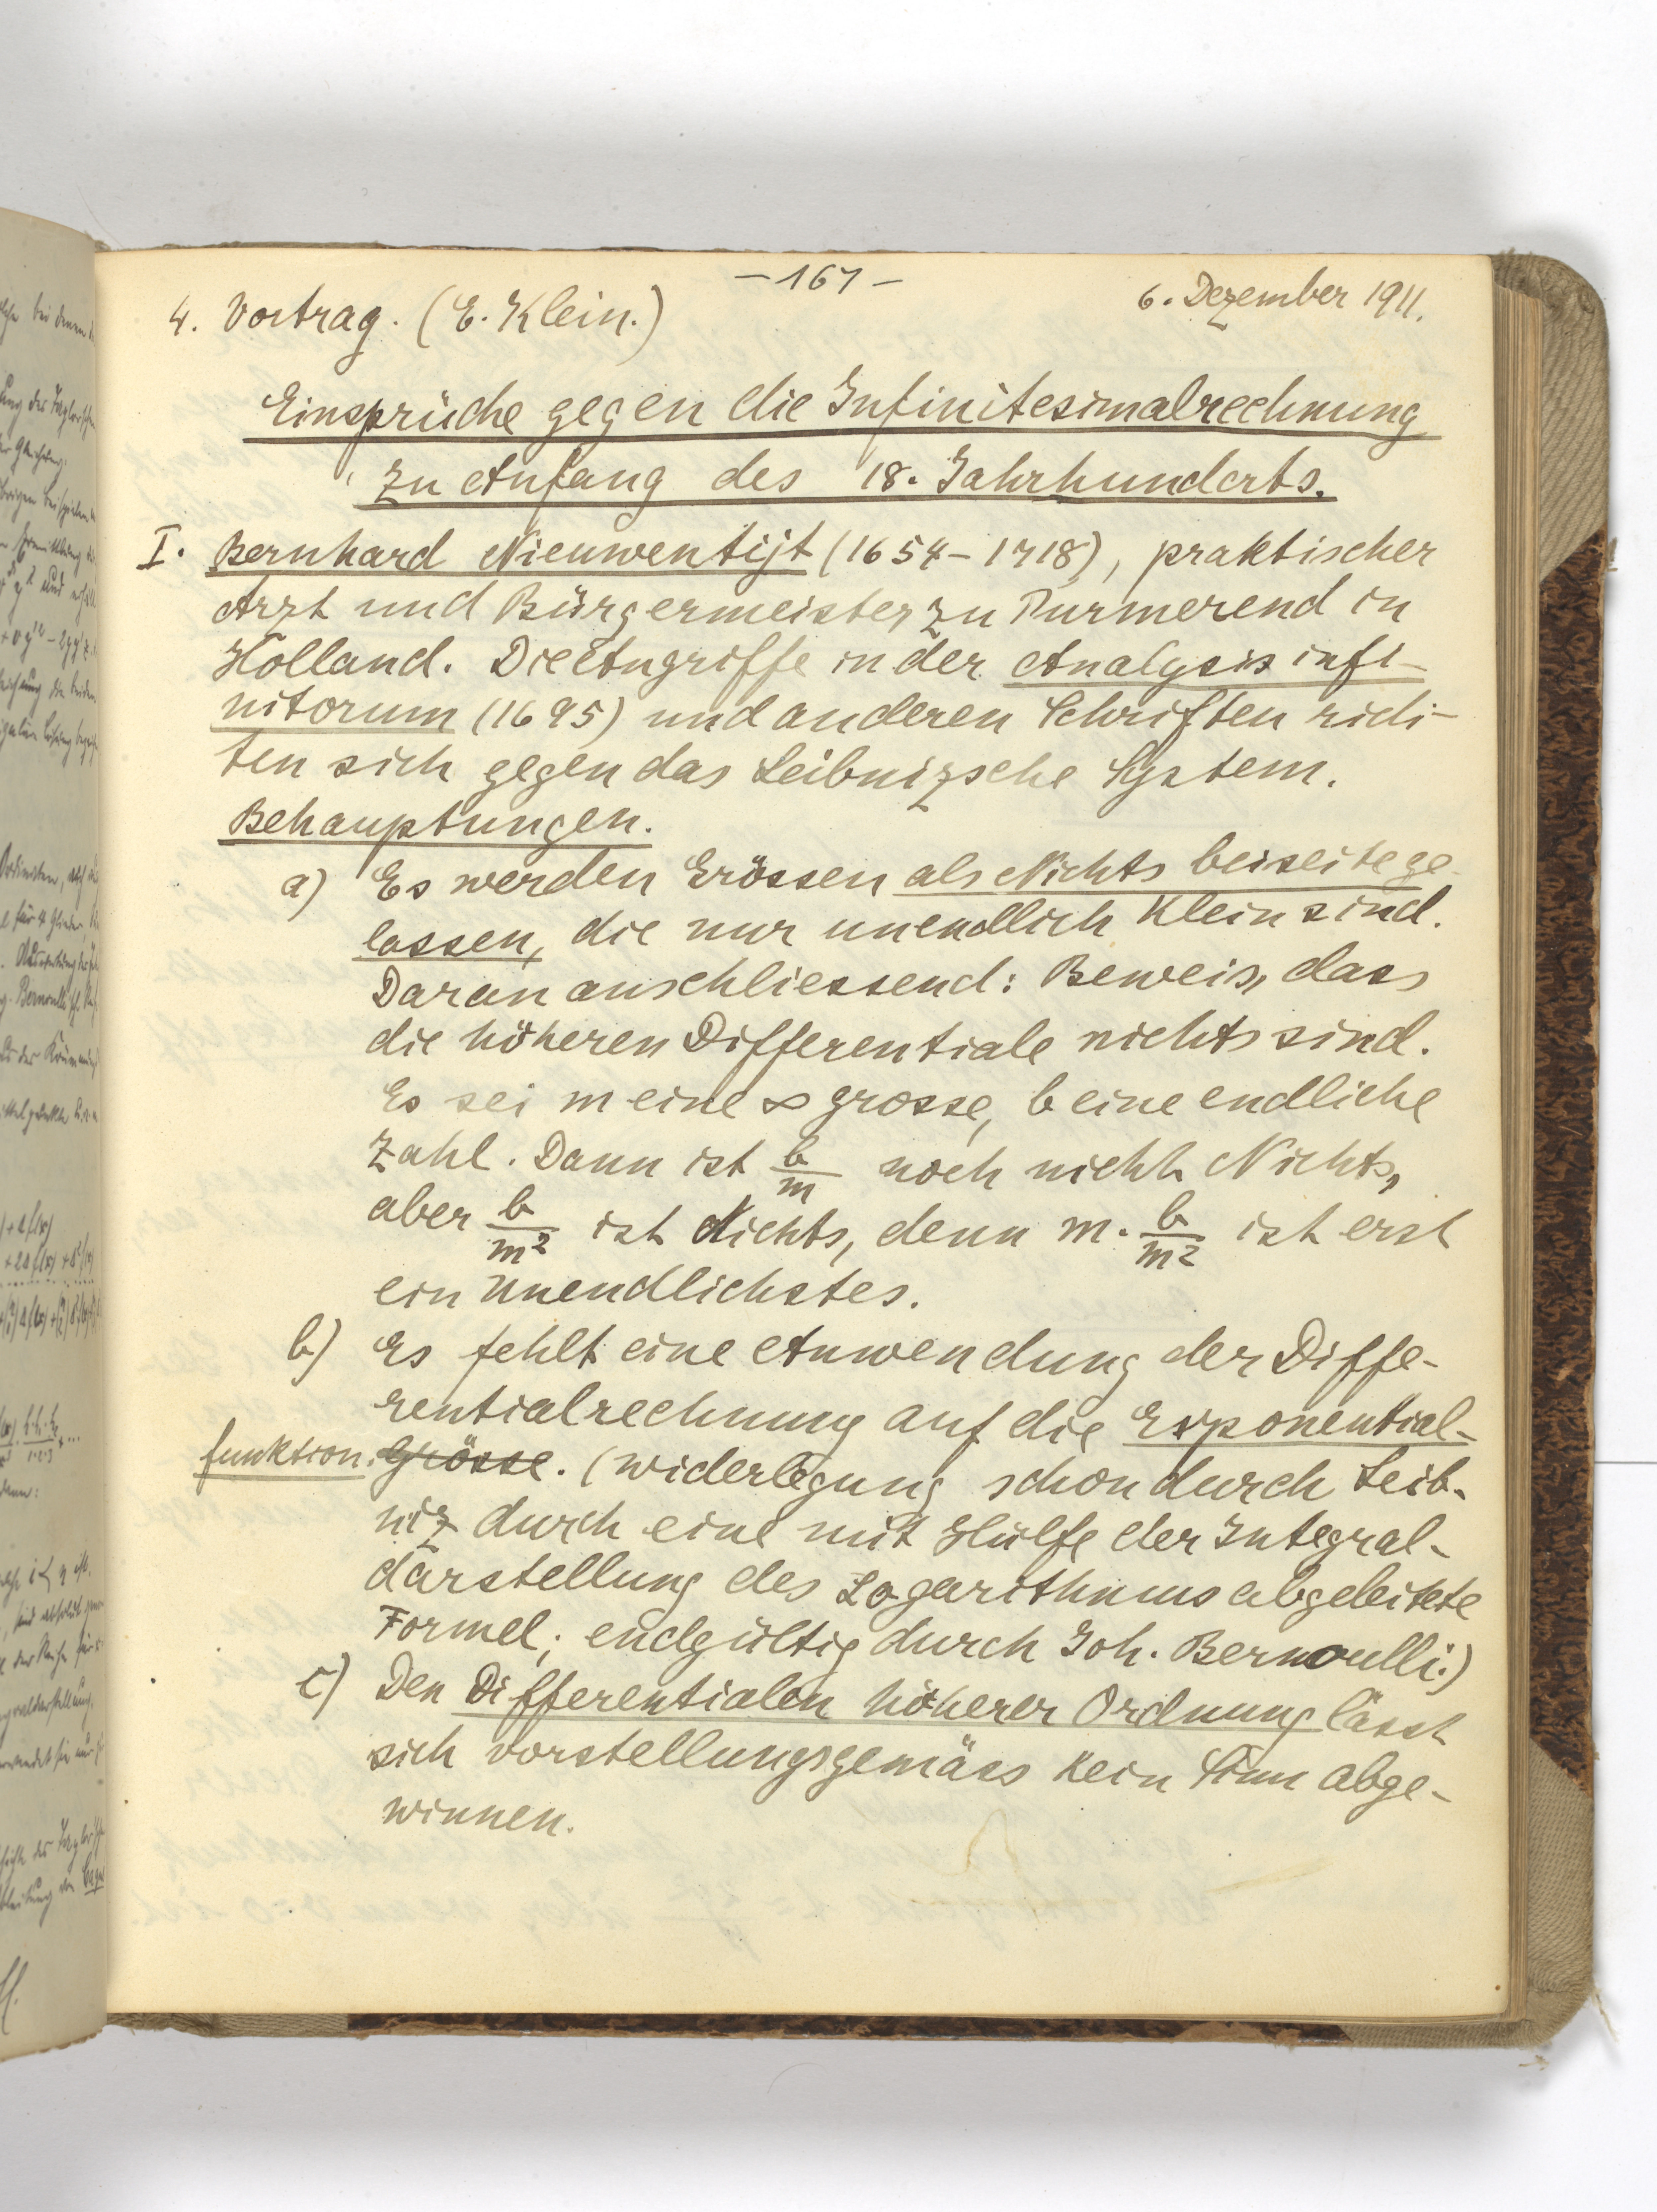 – 167 –
6. Dezember 1911.
4. Vortrag. (E. Klein.)
Einsprüche gegen die Infinitesimalrechnung
zu Anfang des 18. Jahrhunderts.
I. Bernhard Nieuwentijt (1654-1718), praktischer
Arzt und Bürgermeister zu Purmerend in
Holland. Die Angriffe in der Analysis infi-
nitorum (1695) und anderen Schriften rich-
ten sich gegen das Leibnizsche System.
Behauptungen.
a) Es werden Grössen als Nichts beiseite ge-
lassen, die nur unendlich klein sind.
Daran anschliessend: Beweis, dass
die höheren Differentiale nichts sind.
Es sei m eine ∞ grosse, b eine endliche
Zahl. Dann ist b/m noch nicht Nichts,
aber b/m² ist Nichts, denn m · b/m² ist erst
ein Unendlichstes.
b) Es fehlt eine Anwendung der Diffe-
rentialrechnung auf die Exponential-
funktion. Grösse. (Widerlegung schon durch Leib-
niz durch eine mit Hülfe der Integral-
darstellung des Logarithmus abgeleitete
Formel; endgültig durch Joh. Bernoulli.)
c) Den Differentialen höherer Ordnung lässt
sich vorstellungsgemäss kein Sinn abge-
winnen.